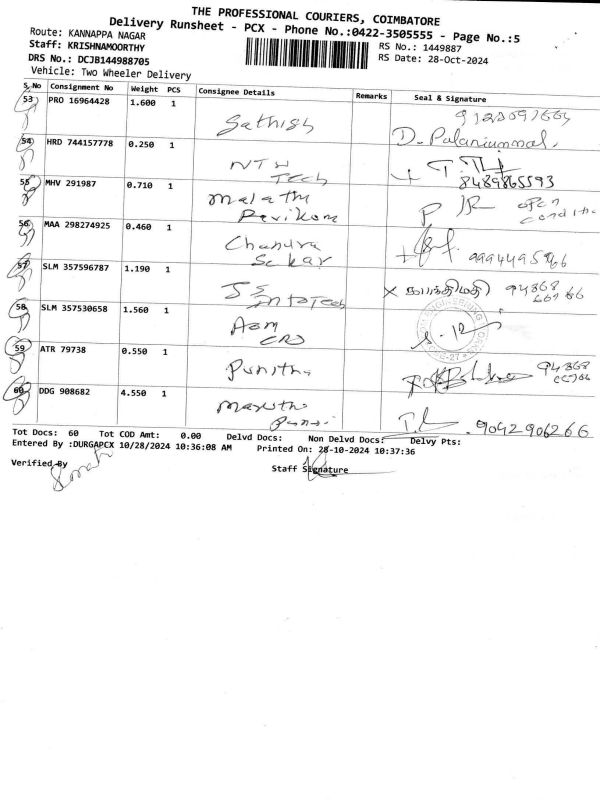 THE PROFESSIONAL COURIERS, COIMBATORE
Delivery Runsheet - PCX - Phone No.:0422-3505555 - Page No.:5
Route: KANNAPPA NAGAR
Staff: KRISHNAMOORTHY RS No.: 1449887
DRS No.: DCJB144988705 RS Date: 28-Oct-2024
Vehicle: Two Wheeler Delivery
S.No Consignment No Weight PCS Consignee Details Remarks Seal & Signature
53 PRO 16964428 1.600 1
Sathish D. Palaniammal.
54 HRD 744157778 0.250 1
NTW
Tech 8489865593
55 MHV 291987 0.710 1
Malathi open
56 MAA 298274925 0.460 1
Chandra
Sekar
57 SLM 357596787 1.190 1
JS
Infotech
58 SLM 357530658 1.560 1
59 ATR 79738 0.550 1
Punitha
60 DDG 908682 4.550 1
9042906266
Tot Docs: 60 Tot COD Amt: 0.00 Delvd Docs: Non Delvd Docs: Delvy Pts:
Entered By :DURGAPCX 10/28/2024 10:36:08 AM Printed On: 28-10-2024 10:37:36
Verified By Staff Signature